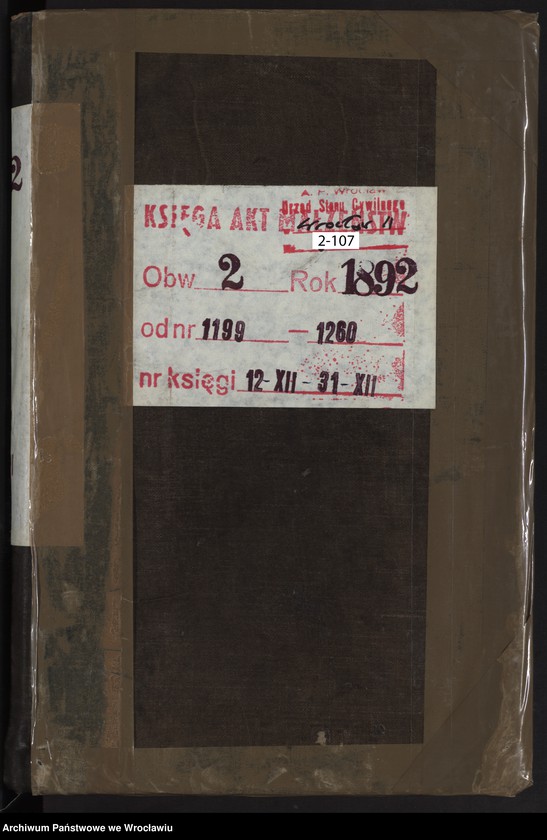 2
A. P. Wrocław
Urząd Stanu Cywilnego
KSIĘGA AKT MAŁŻEŃSTW
Wrocław II
2-107
Obw 2 Rok 1892
od nr 1199 — 1260
nr księgi 12-XII - 31-XII
Archiwum Państwowe we Wrocławiu